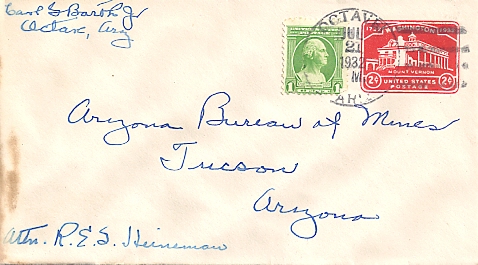 Carl G Barth Jr
Octave, Arz
OCTAVE
JUL
21
1932
M
ARIZ
1732 WASHINGTON 1932
MOUNT VERNON
2¢ UNITED STATES 2¢
POSTAGE
1 1
Arizona Bureau of Mines
Tucson
Arizona
Attn. R.E.S. Heineman